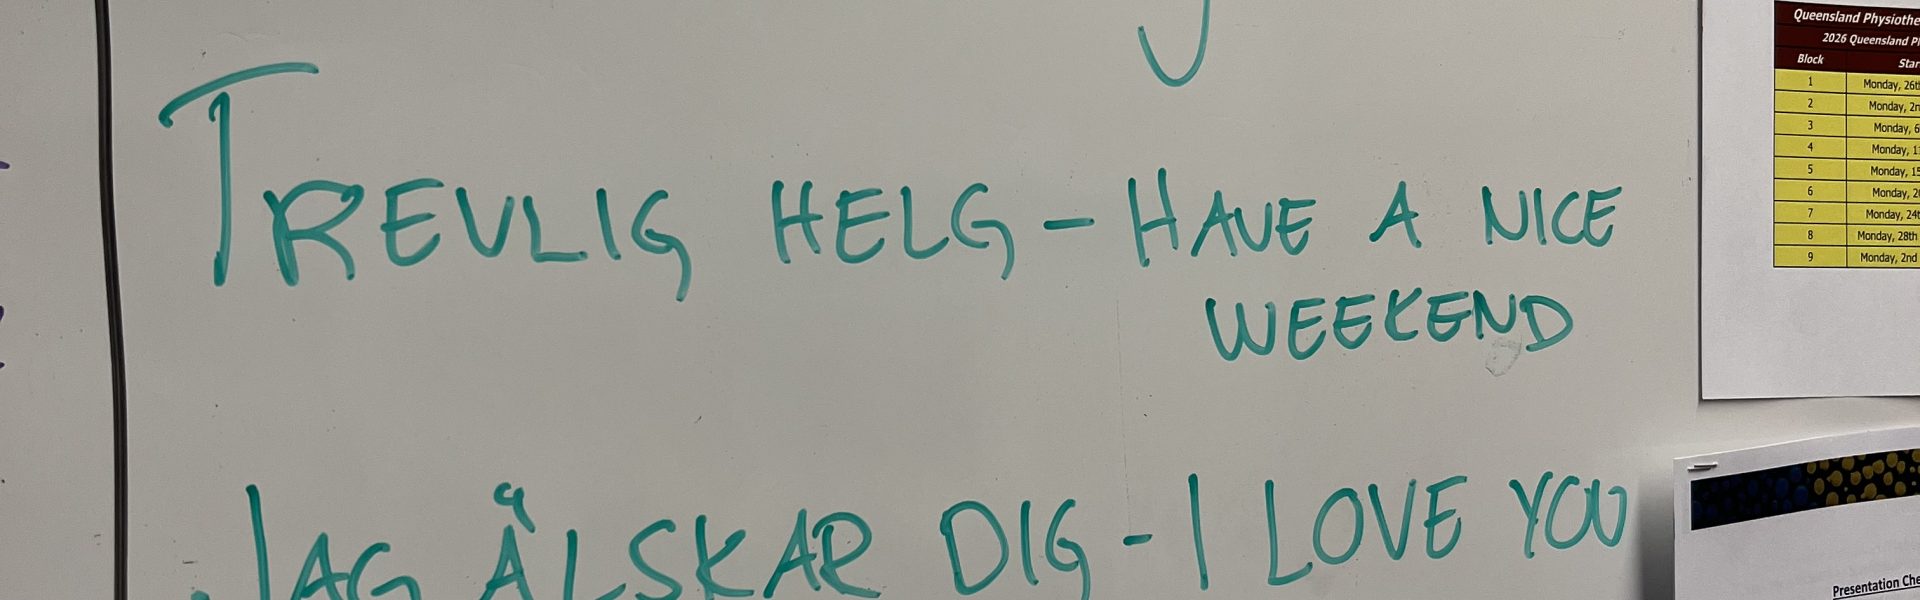 TREVLIG HELG - HAVE A NICE
WEEKEND
JAG ÅLSKAR DIG - I LOVE YOU
Queensland
2026 Queensland
Block
1 Monday, 26th
2 Monday,
3 Monday,
4 Monday,
5 Monday,
6 Monday,
7 Monday,
8 Monday, 28th
9 Monday, 2nd
Presentation